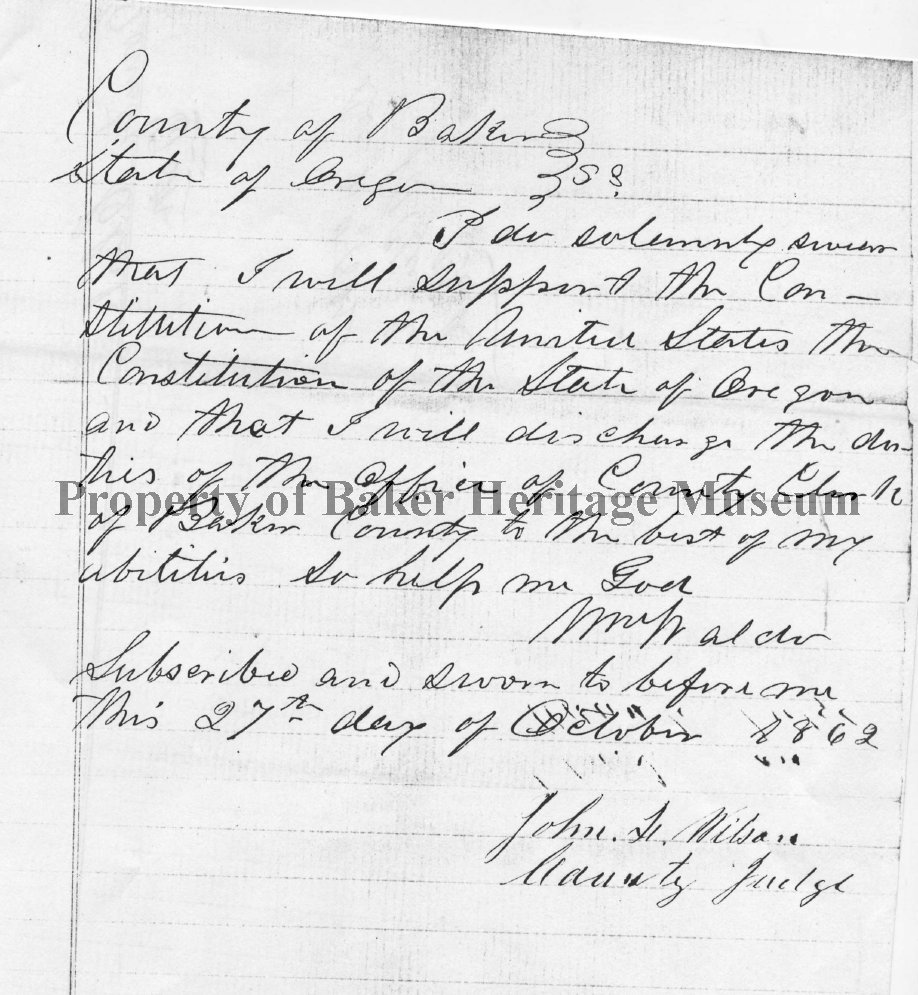 County of Baker
State of Oregon } SS
I do solemnly swear
that I will support the Con-
stitution of the United States the
Constitution of the State of Oregon
and that I will discharge the du-
ties of the office of County Clerk
Property of Baker Heritage Museum
of Baker County to the best of my
abilities So help me God
Wm Waldo
Subscribed and sworn to before me
this 27th day of October 1862
John Wilson
County Judge